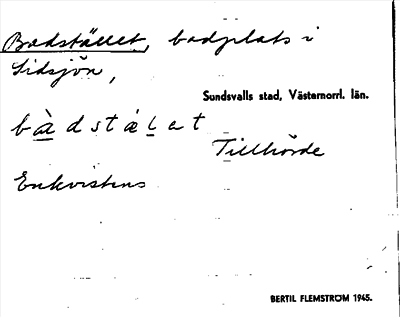 Badstället, badplats i
Sidsjön,
Sundsvalls stad, Västernorrl. län.
bàdstälet
Tillhörde
Enkvistens
BERTIL FLEMSTRÖM 1945.